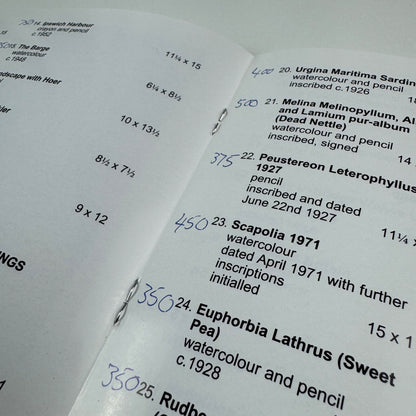 350 14. Ipswich Harbour
crayon and pencil
c.1952
11¼ x 15
15. The Barge
watercolour
c.1948
6¼ x 8½
landscape with Hoer
10 x 13½
8½ x 7½
9 x 12
NGS
1
400 20. Urgina Maritima Sardin
watercolour and pencil
inscribed c.1926
500 21. Melina Melinopyllum, Al
and Lamium pur-album
(Dead Nettle)
watercolour and pencil
inscribed, signed
14
375 22. Peustereon Leterophyllus
1927
pencil
inscribed and dated
June 22nd 1927
11¼
450 23. Scapolia 1971
watercolour
dated April 1971 with further
inscriptions
initialled
15 x 1
350 24. Euphorbia Lathrus (Sweet
Pea)
watercolour and pencil
c.1928
350 25. Rudbe